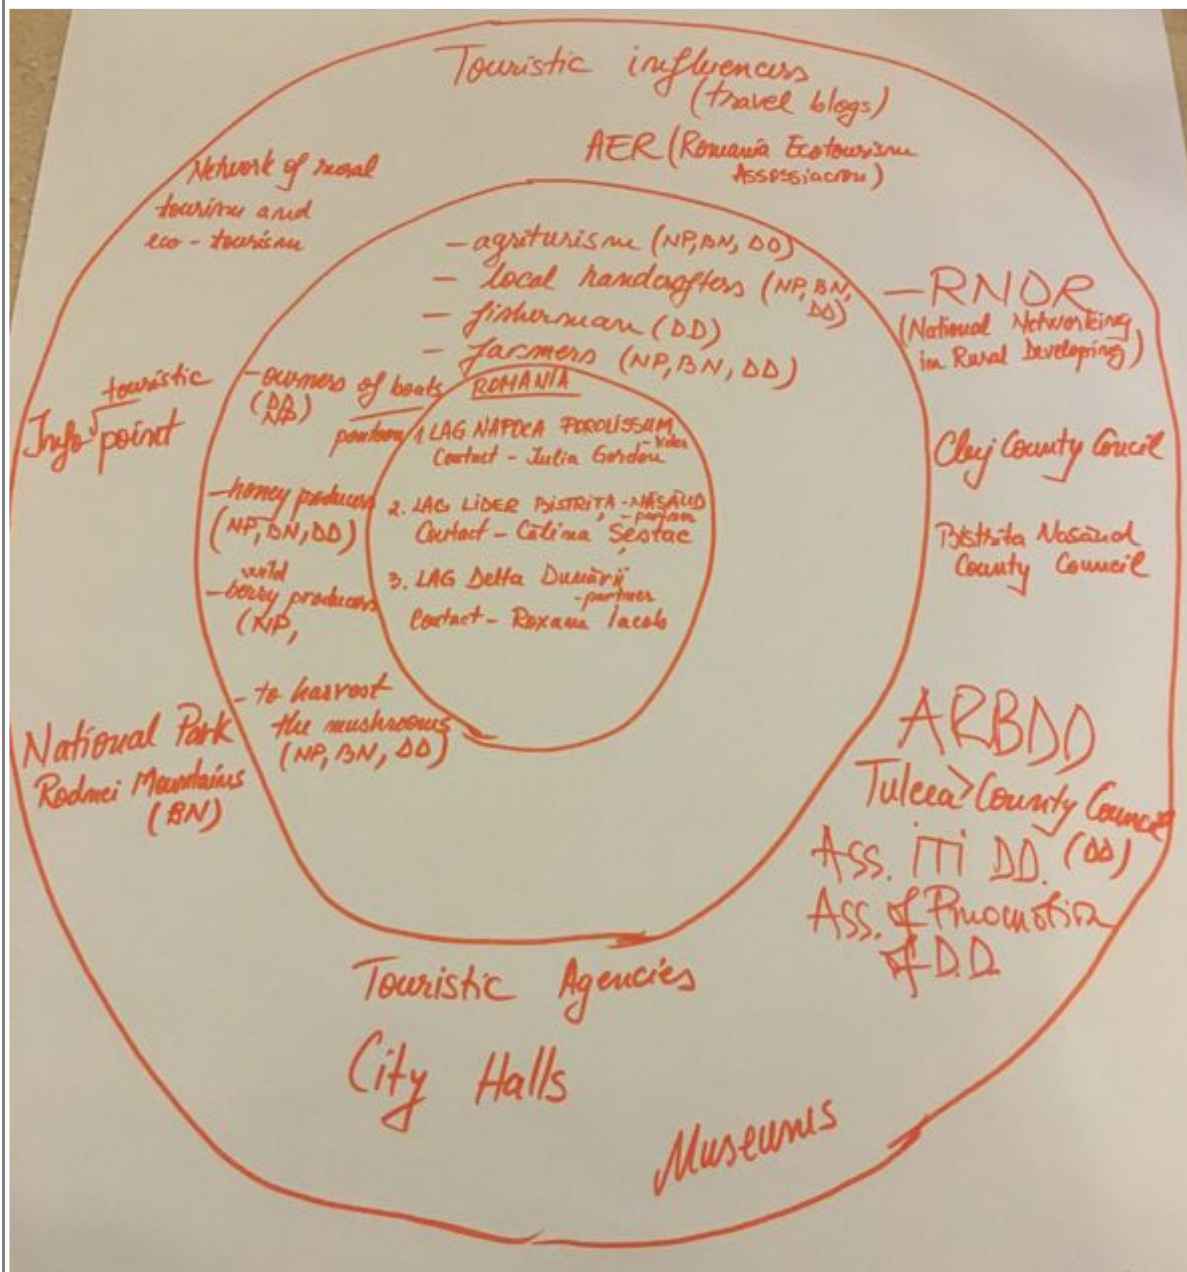 Touristic influencers
(travel blogs)
AER (Romania Ecotourism
Assossiacion)
Network of rural
tourism and
eco-tourism
- agriturism (NP, BN, DD)
- local handcrafters (NP, BN,
DD)
- fisherman (DD)
- farmers (NP, BN, DD)
- RNDR
(National Networking
in Rural Developing)
touristic
Info point
- owners of boats
(DD
NP)
ponton
ROMANIA
1 LAG NAPOCA POROLISSUM
Contact - Iulia Gordon
2. LAG LIDER BISTRIȚA-NĂSĂUD
- partner
Contact - Călina Șestac
3. LAG Delta Dunării
- partner
Contact - Roxana Iacob
- honey producers
(NP, BN, DD)
wild
- berry producers
(NP,
- to harvest
the mushrooms
(NP, BN, DD)
Cluj County Council
Bistrita Nasaud
County Council
National Park
Rodnei Mountains
(BN)
ARBDD
Tulcea County Council
(DD)
Ass. ITI DD.
Ass. of Promotion
of D.D.
Touristic Agencies
City Halls
Museums